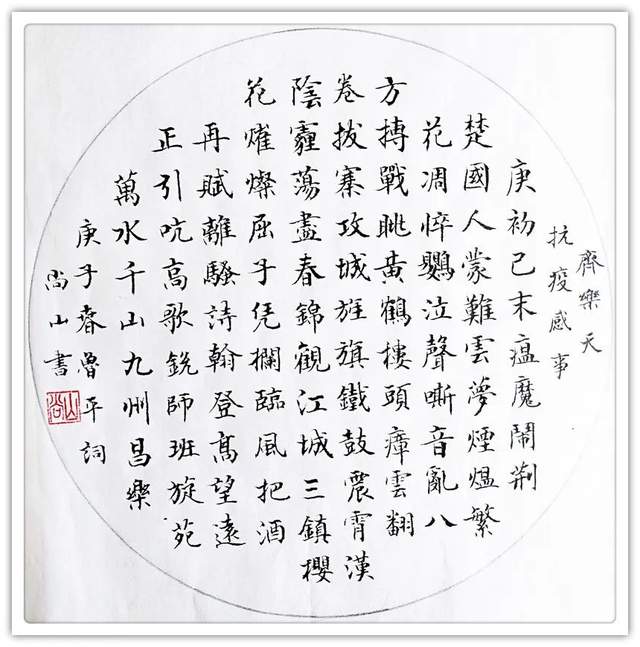 齊樂天
抗疫感事
庚初己末瘟魔鬧荆
楚國人蒙難雲夢煙煴繁
花凋悴鸚泣聲嘶音亂八
方摶戰眺黄鶴樓頭瘴雲翻
卷拔寨攻城旌旗鐵鼓震霄漢
陰霾蕩盡春錦觀江城三鎮櫻
花熣燦屈子凭欄臨風把酒
再賦離騷詩翰登高望遠
正引吭高歌銳師班旋苑
萬水千山九州昌樂
庚子春魯平詞
尚山書
尚山